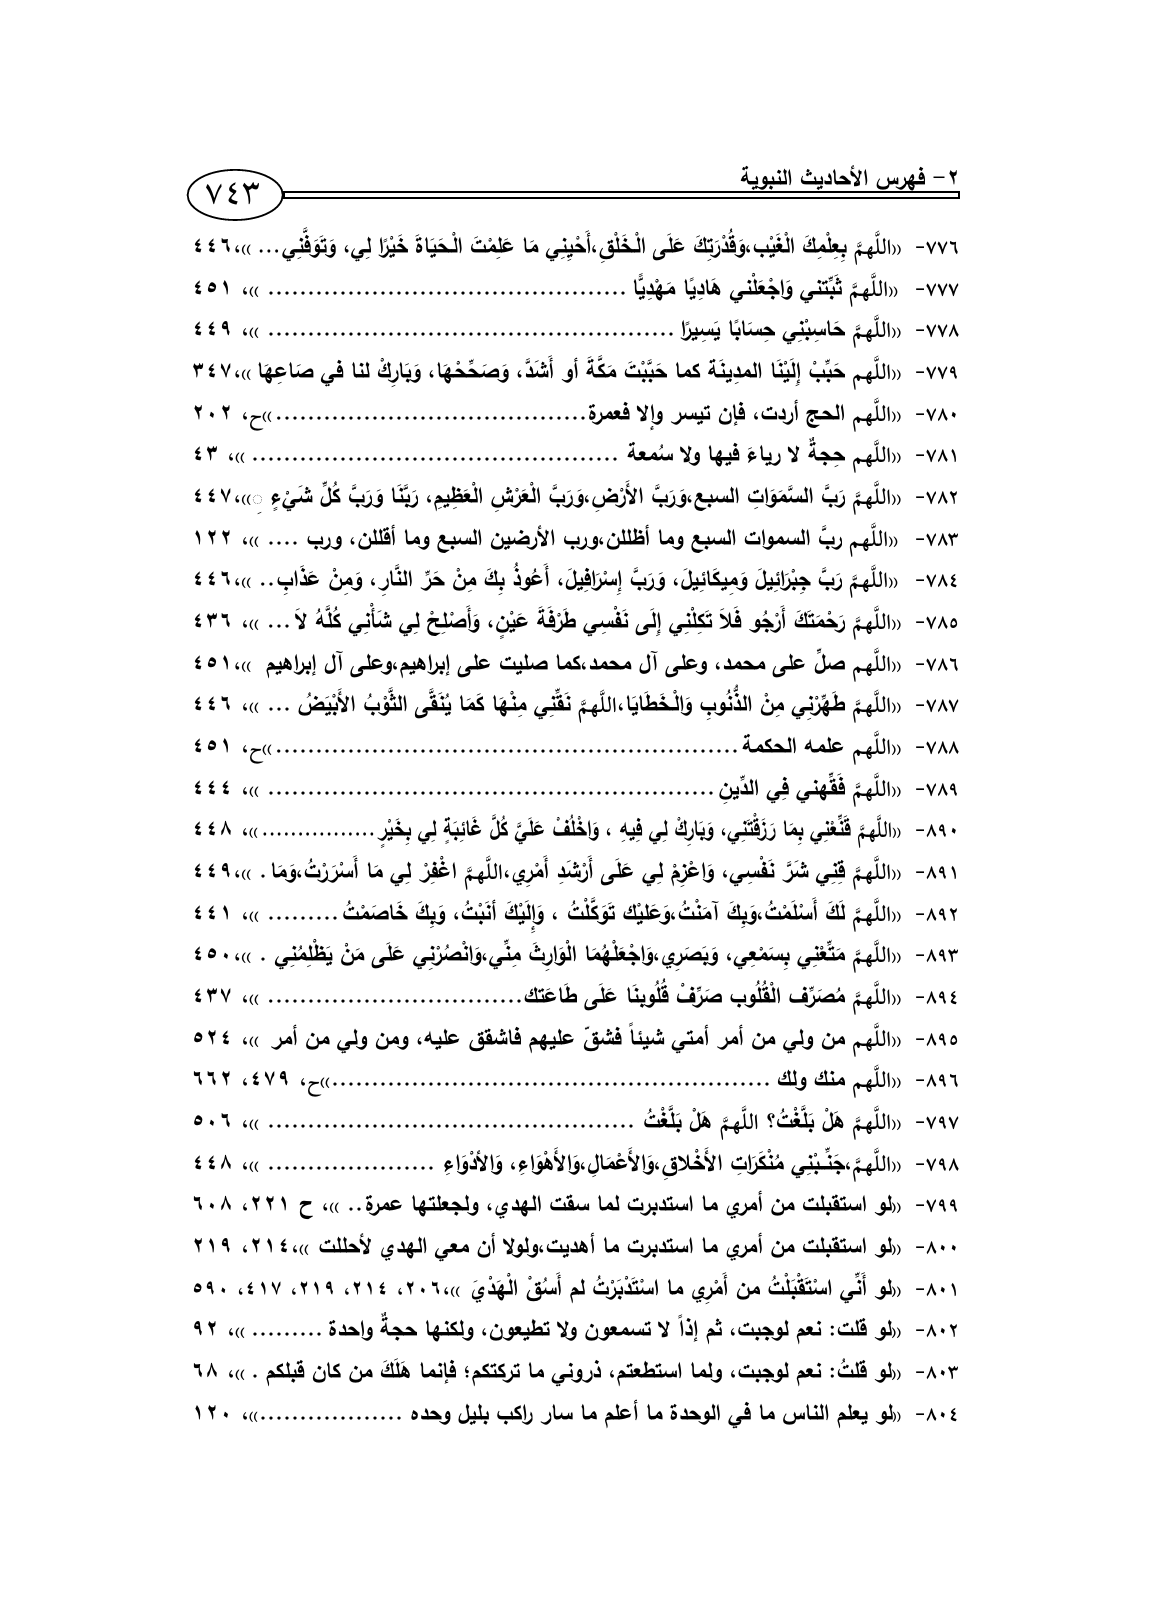 ٢- فهرس الأحاديث النبوية
٧٤٣
٧٧٦- ((اللَّهمَّ بِعِلْمِكَ الْغَيْب،وَقُدْرَتِكَ عَلَى الْخَلْقِ،أَحْيِنِي مَا عَلِمْتَ الْحَيَاةَ خَيْرًا لِي، وَتَوَفَّنِي... ))،٤٤٦
٧٧٧- ((اللَّهمَّ ثَبِّتني وَاجْعَلْني هَادِيًا مَهْدِيًّا ............................................ ))، ٤٥١
٧٧٨- ((اللَّهمَّ حَاسِبْنِي حِسَابًا يَسِيرًا .................................................. ))، ٤٤٩
٧٧٩- ((اللَّهم حَبِّبْ إِلَيْنَا المدِينَة كما حَبَّبْتَ مَكَّةَ أو أَشَدَّ، وَصَحِّحْهَا، وَبَارِكْ لنا في صَاعِهَا ))،٣٤٧
٧٨٠- ((اللَّهم الحج أردت، فإن تيسر وإلا فعمرة.......................................))ح، ٢٠٢
٧٨١- ((اللَّهم حِجةٌ لا رياءَ فيها ولا سُمعة ............................................. ))، ٤٣
٧٨٢- ((اللَّهمَّ رَبَّ السَّمَوَاتِ السبع،وَرَبَّ الأَرْضِ،وَرَبَّ الْعَرْشِ الْعَظِيمِ، رَبَّنَا وَرَبَّ كُلِّ شَيْءٍ ِ))،٤٤٧
٧٨٣- ((اللَّهم ربَّ السموات السبع وما أظللن،ورب الأرضين السبع وما أقللن، ورب .... ))، ١٢٢
٧٨٤- ((اللَّهمَّ رَبَّ جِبْرَائِيلَ وَمِيكَائِيلَ، وَرَبَّ إِسْرَافِيلَ، أَعُوذُ بِكَ مِنْ حَرِّ النَّارِ، وَمِنْ عَذَابِ.. ))،٤٤٦
٧٨٥- ((اللَّهمَّ رَحْمَتَكَ أَرْجُو فَلاَ تَكِلْنِي إِلَى نَفْسِي طَرْفَةَ عَيْنٍ، وَأَصْلِحْ لِي شَأْنِي كُلَّهُ لاَ... ))، ٤٣٦
٧٨٦- ((اللَّهم صلِّ على محمد، وعلى آل محمد،كما صليت على إبراهيم،وعلى آل إبراهيم ))،٤٥١
٧٨٧- ((اللَّهمَّ طَهِّرْنِي مِنْ الذُّنُوبِ وَالْخَطَايَا،اللَّهمَّ نَقِّنِي مِنْهَا كَمَا يُنَقَّى الثَّوْبُ الأَبْيَضُ ... ))، ٤٤٦
٧٨٨- ((اللَّهم علمه الحكمة..........................................................))ح، ٤٥١
٧٨٩- ((اللَّهمَّ فَقِّهني فِي الدِّينِ ..................................................... ))، ٤٤٤
٨٩٠- ((اللَّهمَّ قَنِّعْنِي بِمَا رَزَقْتَنِي، وَبَارِكْ لِي فِيهِ ، وَاخْلُفْ عَلَيَّ كُلَّ غَائِبَةٍ لِي بِخَيْرٍ................))، ٤٤٨
٨٩١- ((اللَّهمَّ قِنِي شَرَّ نَفْسِي، وَاعْزِمْ لِي عَلَى أَرْشَدِ أَمْرِي،اللَّهمَّ اغْفِرْ لِي مَا أَسْرَرْتُ،وَمَا . ))،٤٤٩
٨٩٢- ((اللَّهمَّ لَكَ أَسْلَمْتُ،وَبِكَ آمَنْتُ،وَعَليْك تَوَكَّلْتُ ، وَإِلَيْكَ أنَبْتُ، وَبِكَ خَاصَمْتُ......... ))، ٤٤١
٨٩٣- ((اللَّهمَّ مَتِّعْنِي بِسَمْعِي، وَبَصَرِي،وَاجْعَلْهُمَا الْوَارِثَ مِنِّي،وَانْصُرْنِي عَلَى مَنْ يَظْلِمُنِي . ))،٤٥٠
٨٩٤- ((اللَّهمَّ مُصَرِّف الْقُلُوب صَرِّفْ قُلُوبنَا عَلَى طَاعَتك............................... ))، ٤٣٧
٨٩٥- ((اللَّهم من ولي من أمر أمتي شيئاً فشقّ عليهم فاشقق عليه، ومن ولي من أمر ))، ٥٢٤
٨٩٦- ((اللَّهم منك ولك .....................................................))ح، ٤٧٩، ٦٦٢
٧٩٧- ((اللَّهمَّ هَلْ بَلَّغْتُ؟ اللَّهمَّ هَلْ بَلَّغْتُ ............................................. ))، ٥٠٦
٧٩٨- ((اللَّهمَّ،جَنِّـبْنِي مُنْكَرَاتِ الأَخْلاقِ،وَالأَعْمَالِ،وَالأَهْوَاءِ، وَالأدْوَاءِ .................... ))، ٤٤٨
٧٩٩- ((لو استقبلت من أمري ما استدبرت لما سقت الهدي، ولجعلتها عمرة.. ))، ح ٢٢١، ٦٠٨
٨٠٠- ((لو استقبلت من أمري ما استدبرت ما أهديت،ولولا أن معي الهدي لأحللت ))،٢١٤، ٢١٩
٨٠١- ((لو أَنِّي اسْتَقْبَلْتُ من أَمْرِي ما اسْتَدْبَرْتُ لم أَسُقْ الْهَدْيَ ))،٢٠٦، ٢١٤، ٢١٩، ٤١٧، ٥٩٠
٨٠٢- ((لو قلت: نعم لوجبت، ثم إذاً لا تسمعون ولا تطيعون، ولكنها حجةٌ واحدة ......... ))، ٩٢
٨٠٣- ((لو قلتُ: نعم لوجبت، ولما استطعتم، ذروني ما تركتكم؛ فإنما هَلَكَ من كان قبلكم . ))، ٦٨
٨٠٤- ((لو يعلم الناس ما في الوحدة ما أعلم ما سار راكب بليل وحده ..................))، ١٢٠